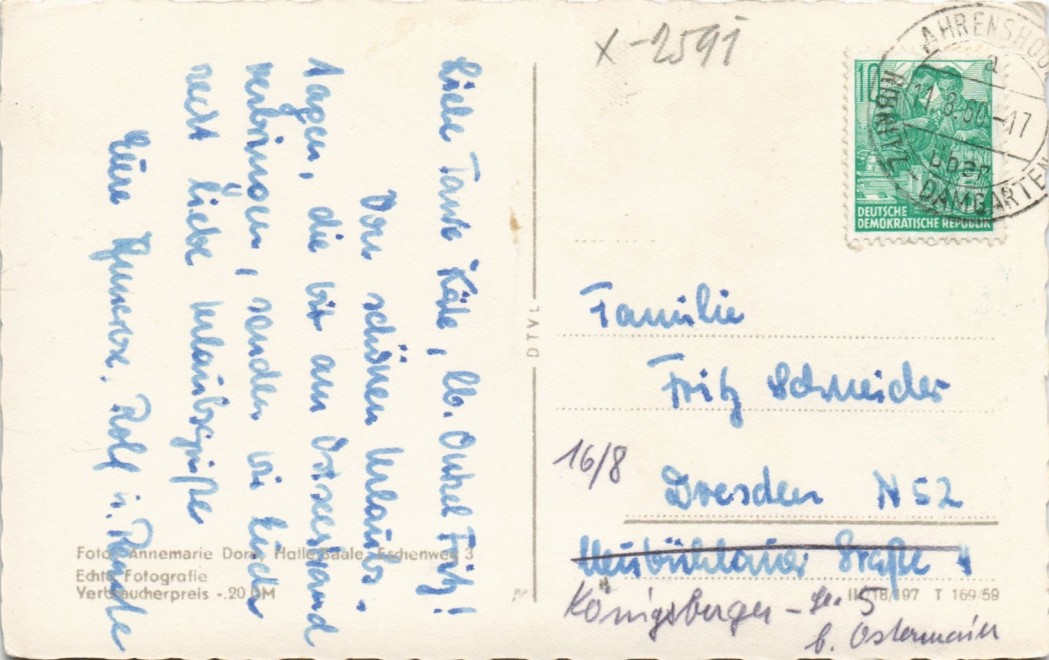 x-2591
AHRENSHOOP
a.
11.8.60.-17
über
RIBNITZ-DAMGARTEN
10
DEUTSCHE
DEMOKRATISCHE REPUBLIK
Liebe Tante Käte, lb. Onkel Fritz!
Von schönen Urlaubs-
tagen, die wir am Ostseestrand
verbringen, senden wir Euch
recht liebe Urlaubsgrüße
Eure Annerose, Rolf u. Renate
Foto: Annemarie Dorn, Halle/Saale, Eschenweg 3
Echte Fotografie
Verbraucherpreis -.20 DM
DTVL
Familie
Fritz Schneider
16/8
Dresden N 52
Neubühlauer Straße 4
Königsberger-Str. 5
b. Ostermaier
II/18/197 T 169/59